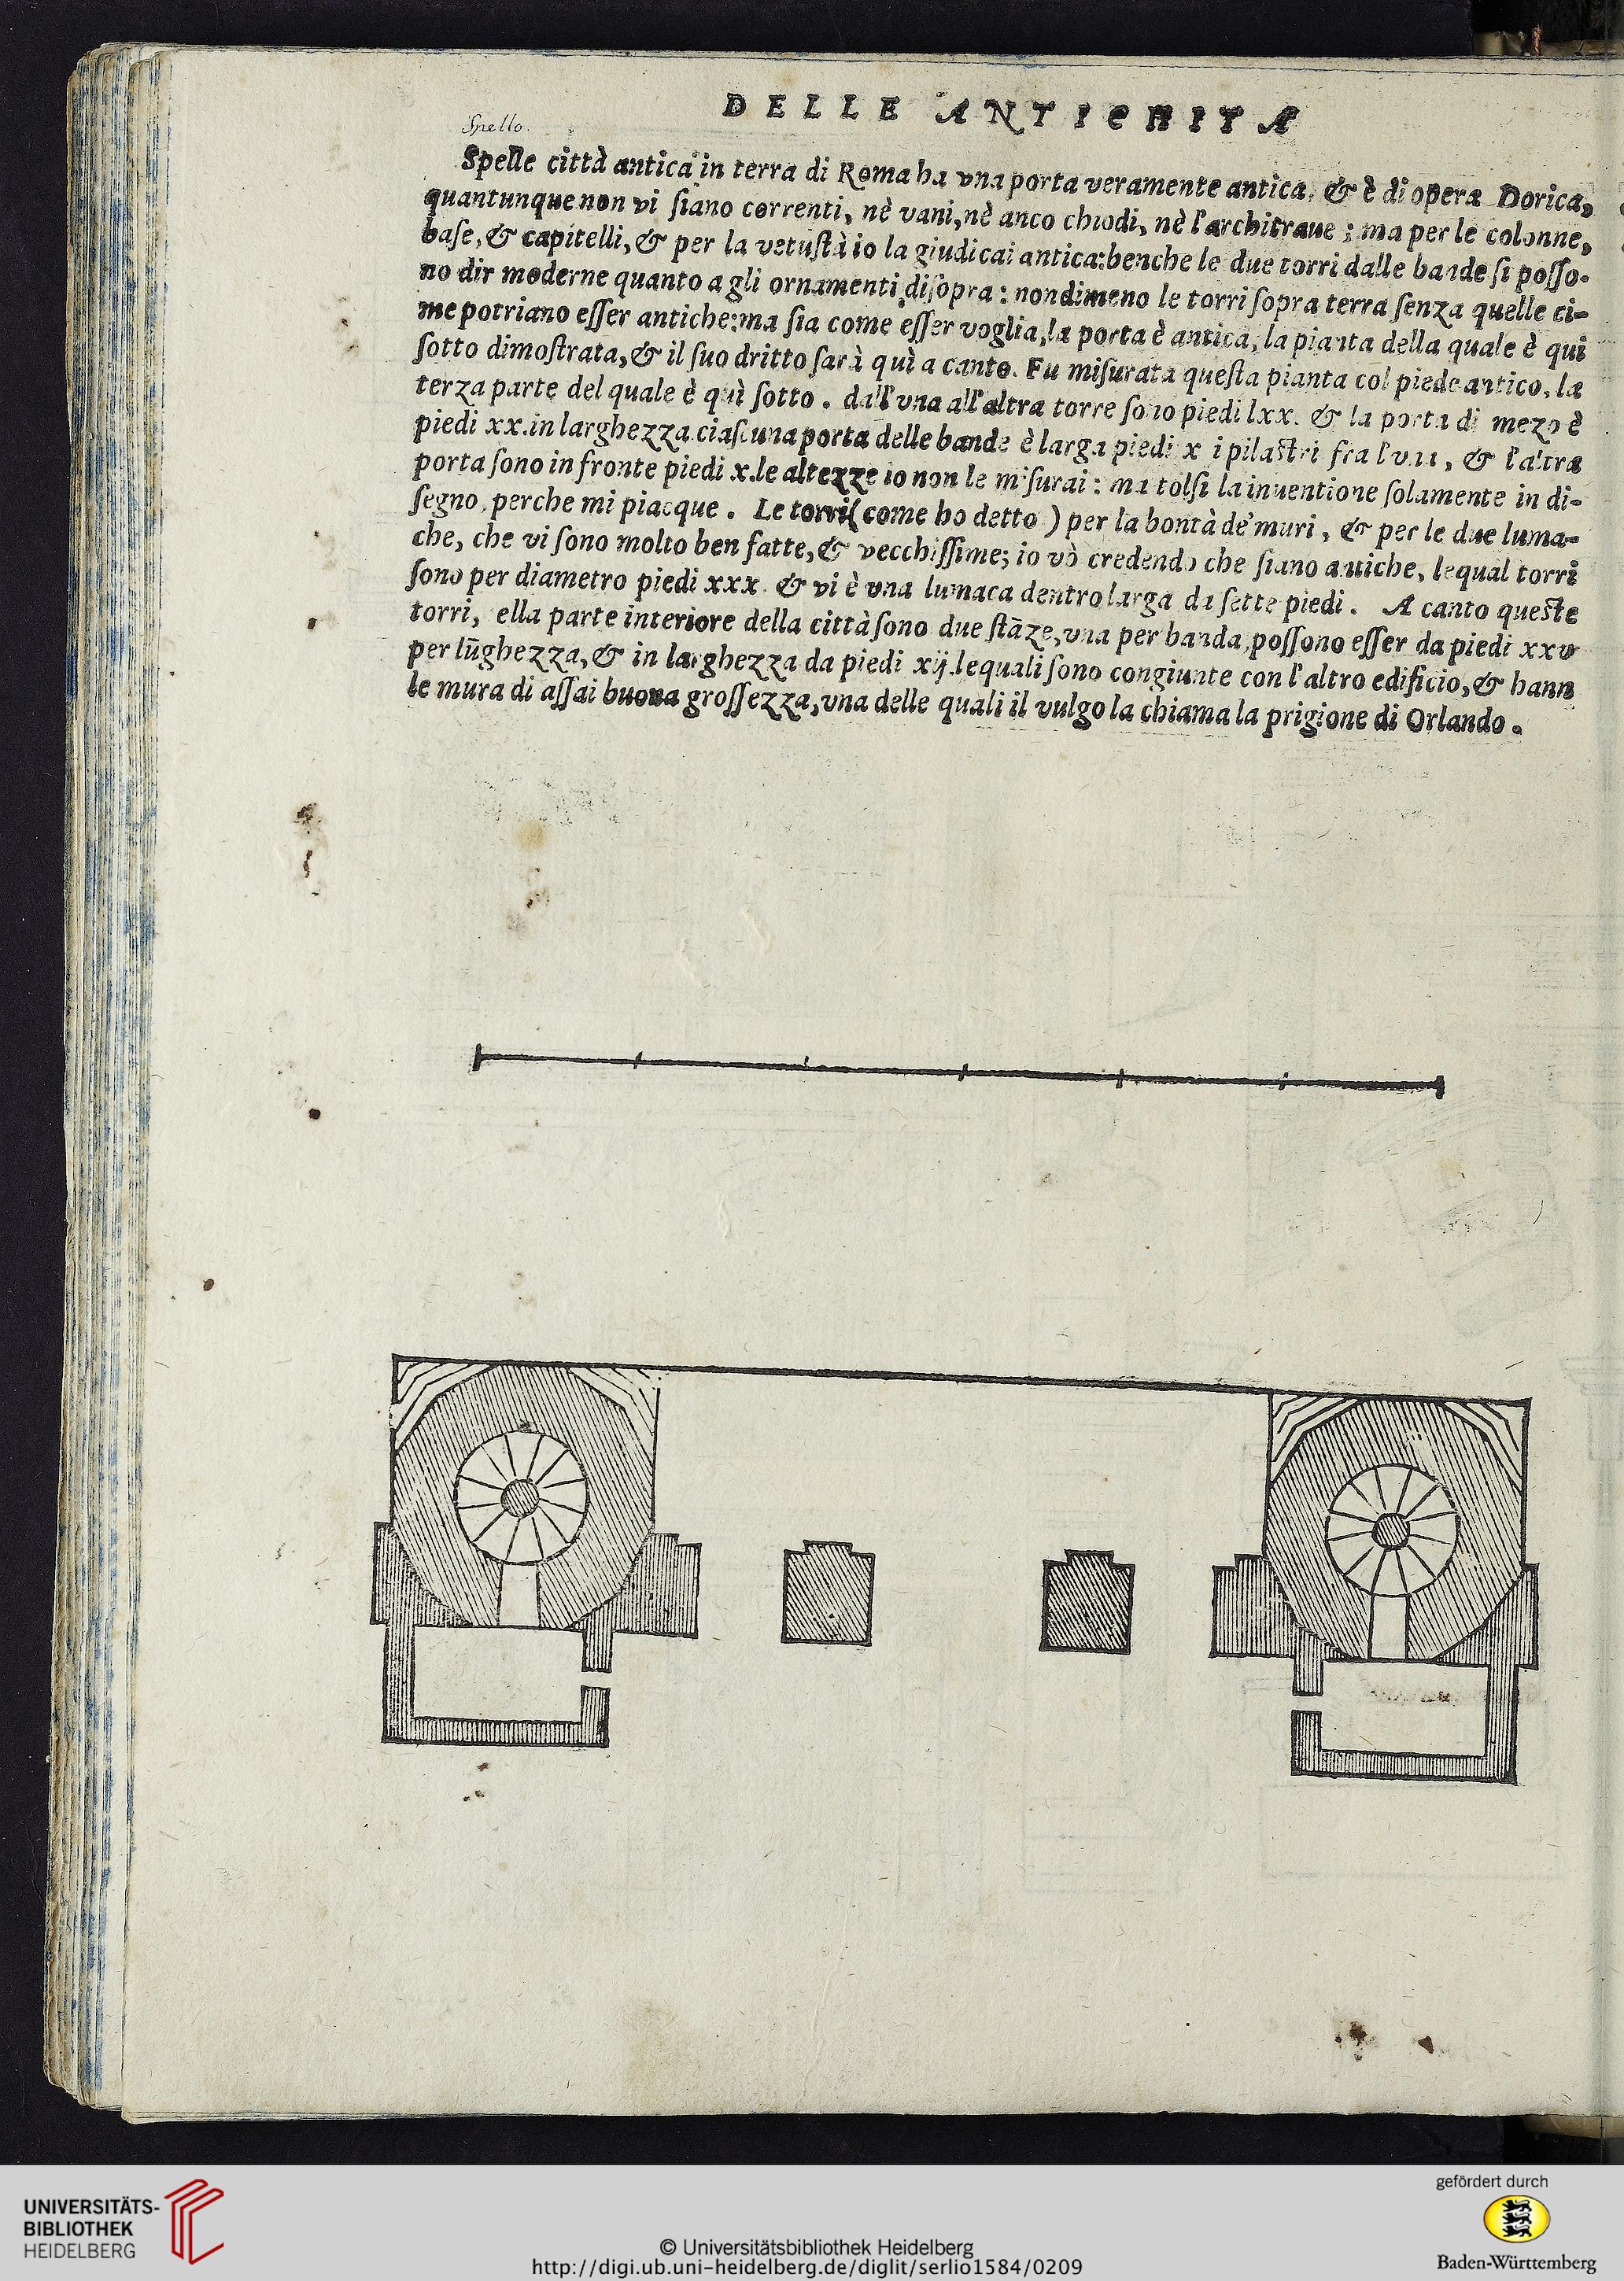 DELLE ANTICHITA
Spello.
Spelle città antica in terra di Roma ha vna porta veramente antica, & è di opera Dorica,
quantunque non vi ſiano correnti, nè vani, nè anco chiodi, nè l'architraue; ma per le colonne,
baſe, & capitelli, & per la vetuſtà io la giudicai antica: benche le due torri dalle bande ſi poſſo-
no dir moderne quanto a gli ornamenti diſopra: nondimeno le torri ſopra terra ſenza quelle ci-
me potriano eſſer antiche: ma ſia come eſſer voglia, la porta è antica, la pianta della quale è qui
ſotto dimoſtrata, & il ſuo dritto ſarà quì a canto. Fu miſurata queſta pianta col piede antico, la
terza parte del quale è quì ſotto. dall'vna all'altra torre ſono piedi lxx. & la porta di mezo è
piedi xx. in larghezza. ciaſcuna porta delle bande è larga piedi x i pilaſtri fra l'vna, & l'altra
porta ſono in fronte piedi x. le altezze io non le miſurai: ma tolſi la inuentione ſolamente in di-
ſegno, perche mi piacque. Le torri (come ho detto) per la bontà de' muri, & per le due luma-
che, che vi ſono molto ben fatte, & vecchiſſime; io vò credendo che ſiano antiche, lequal torri
ſono per diametro piedi xxx. & vi è vna lumaca dentro larga da ſette piedi. A canto queſte
torri, ella parte interiore della città ſono due ſtāze, vna per banda, poſſono eſſer da piedi xxv
per lūghezza, & in larghezza da piedi xij. lequali ſono congiunte con l'altro edificio, & hann
le mura di aſſai buona groſſezza, vna delle quali il vulgo la chiama la prigione di Orlando.
UNIVERSITÄTS-
BIBLIOTHEK
HEIDELBERG
© Universitätsbibliothek Heidelberg
http://digi.ub.uni-heidelberg.de/diglit/serlio1584/0209
gefördert durch
Baden-Württemberg